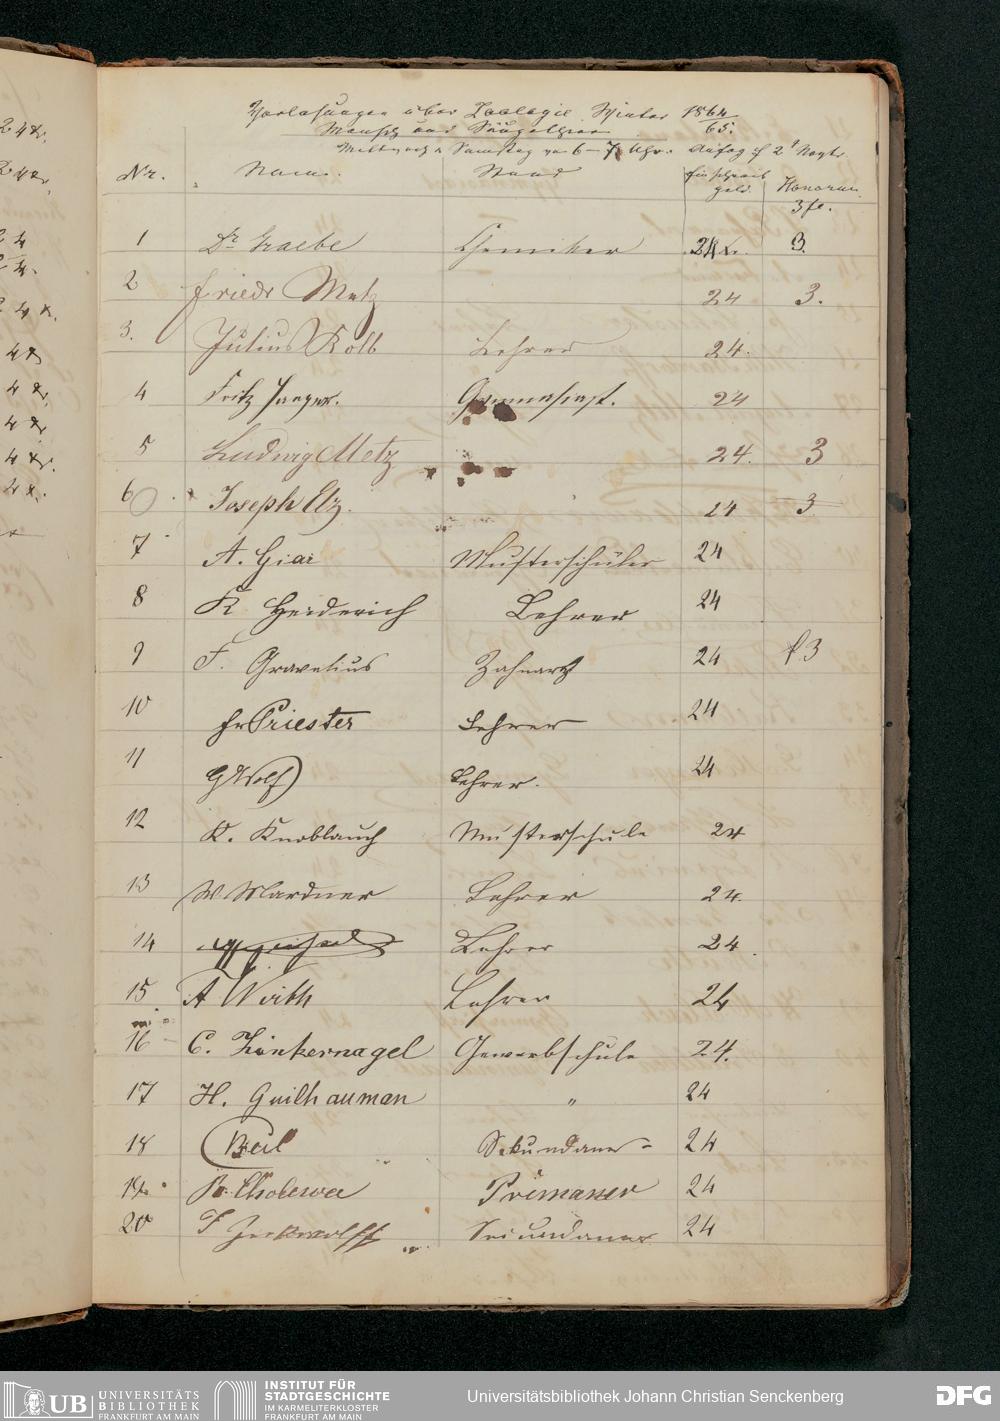 Vorlesungen über Zoologie Winter 1864/65.
Mensch und Säugethiere
Mittwoch u Samstag von 6-7 Uhr. Anfag 2t Novbr
Nr. Name. Stand Einschreibgeld. Honorar 3 fl.
1 Dr Graebe Chemiker 24x. 3.
2 Friedr Metz 24 3.
3. Julius Kolb Lehrer 24.
4 Fritz Jaeger. Gymnasiast. 24
5 Ludwig Metz 24. 3
6 Joseph Etz. 24 3
7 A. Giar Musterschüler 24
8 K Heiderich Lehrer 24
9 F. Gravelius Zahnarzt 24 f 3
10 Fr Priester Lehrer 24
11 G Wolf Lehrer. 24
12 K. Knoblauch Musterschule 24
13 W Mardner Lehrer 24.
14 Lehrer 24
15 A Wirth Lehrer 24
16 C. Zinkernagel Gewerbschule 24.
17 H. Guilhauman " 24
18 Beil Sekundaner 24
19. Primaner 24
20 F Secundaner 24
24x.
UB UNIVERSITÄTS BIBLIOTHEK FRANKFURT AM MAIN
INSTITUT FÜR STADTGESCHICHTE IM KARMELITERKLOSTER FRANKFURT AM MAIN
Universitätsbibliothek Johann Christian Senckenberg
DFG